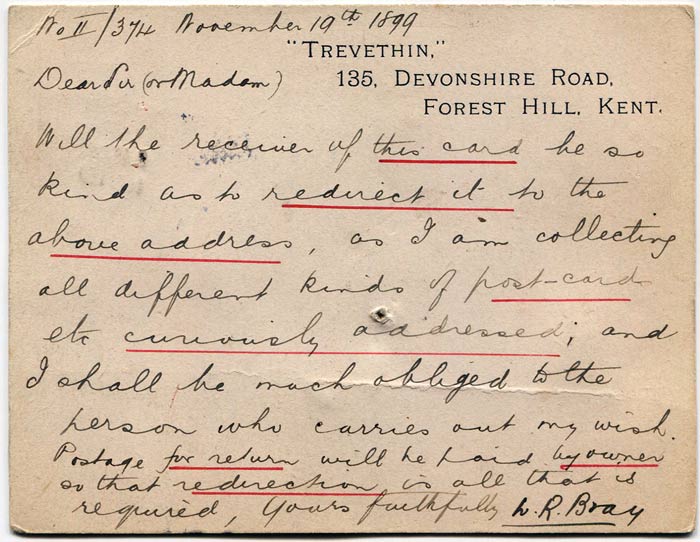 No II/374 November 19th 1899
"TREVETHIN,"
Dear Sir (or Madam)
135, DEVONSHIRE ROAD,
FOREST HILL, KENT.
Will the receiver of this card be so
kind as to redirect it to the
above address, as I am collecting
all different kinds of post-cards
etc curiously addressed; and
I shall be much obliged to the
person who carries out my wish.
Postage for return will be paid by owner
so that redirection is all that is
required, Yours faithfully W. R. Bray